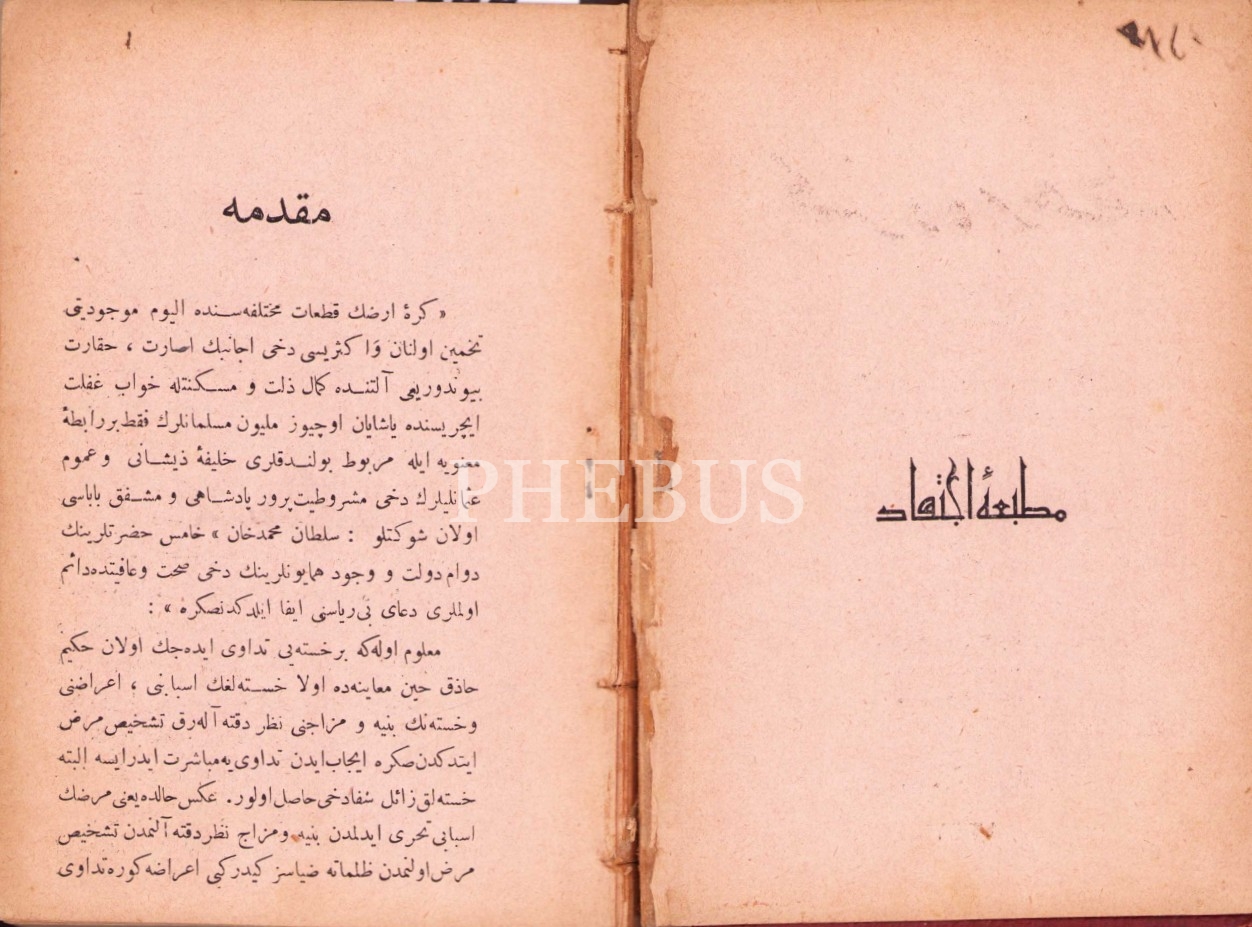 مطبعهٔ اجتهاد
مقدمه
« كرهٔ ارضك قطعات مختلفه‌سنده اليوم موجوديتى
تخمين اولنان و اكثريسى دخى اجانبك اسارت ، حقارت
بيوندوريغى آلتنده كمال ذلت و مسكنتله خواب غفلت
ايچريسنده ياشايان اوچيوز مليون مسلمانلرك فقط بر رابطهٔ
معنويه ايله مربوط بولندقلرى خليفهٔ ذيشانى و عموم
عثمانليلرك دخى مشروطيت‌پرور پادشاهى و مشفق باباسى
اولان شوكتلو : سلطان محمدخان » خامس حضرتلرينك
دوام دولت و وجود همايونلرينك دخى صحت وعافيتده دائم
اولملرى دعاى بى‌رياسنى ايفا ايلدكدنصكره » :
معلوم اوله‌كه برخسته‌يى تداوى ايده‌جك اولان حكيم
حاذق حين معاينه‌ده اولا خسته‌لغك اسبابنى ، اعراضنى
وخسته‌نك بنيه و مزاجنى نظر دقته آله‌رق تشخيص مرض
ايتدكدن‌صكره ايجاب‌ايدن تداوى‌يه مباشرت ايدرايسه البته
خسته‌لق زائل شفادخى حاصل اولور. عكس حالده يعنى مرضك
اسبابى تحرى ايدلمدن بنيه ومزاج نظردقته آلنمدن تشخيص
مرض اولنمدن ظلماته ضياسز كيدركبى اعراضه كوره تداوى
PHEBUS